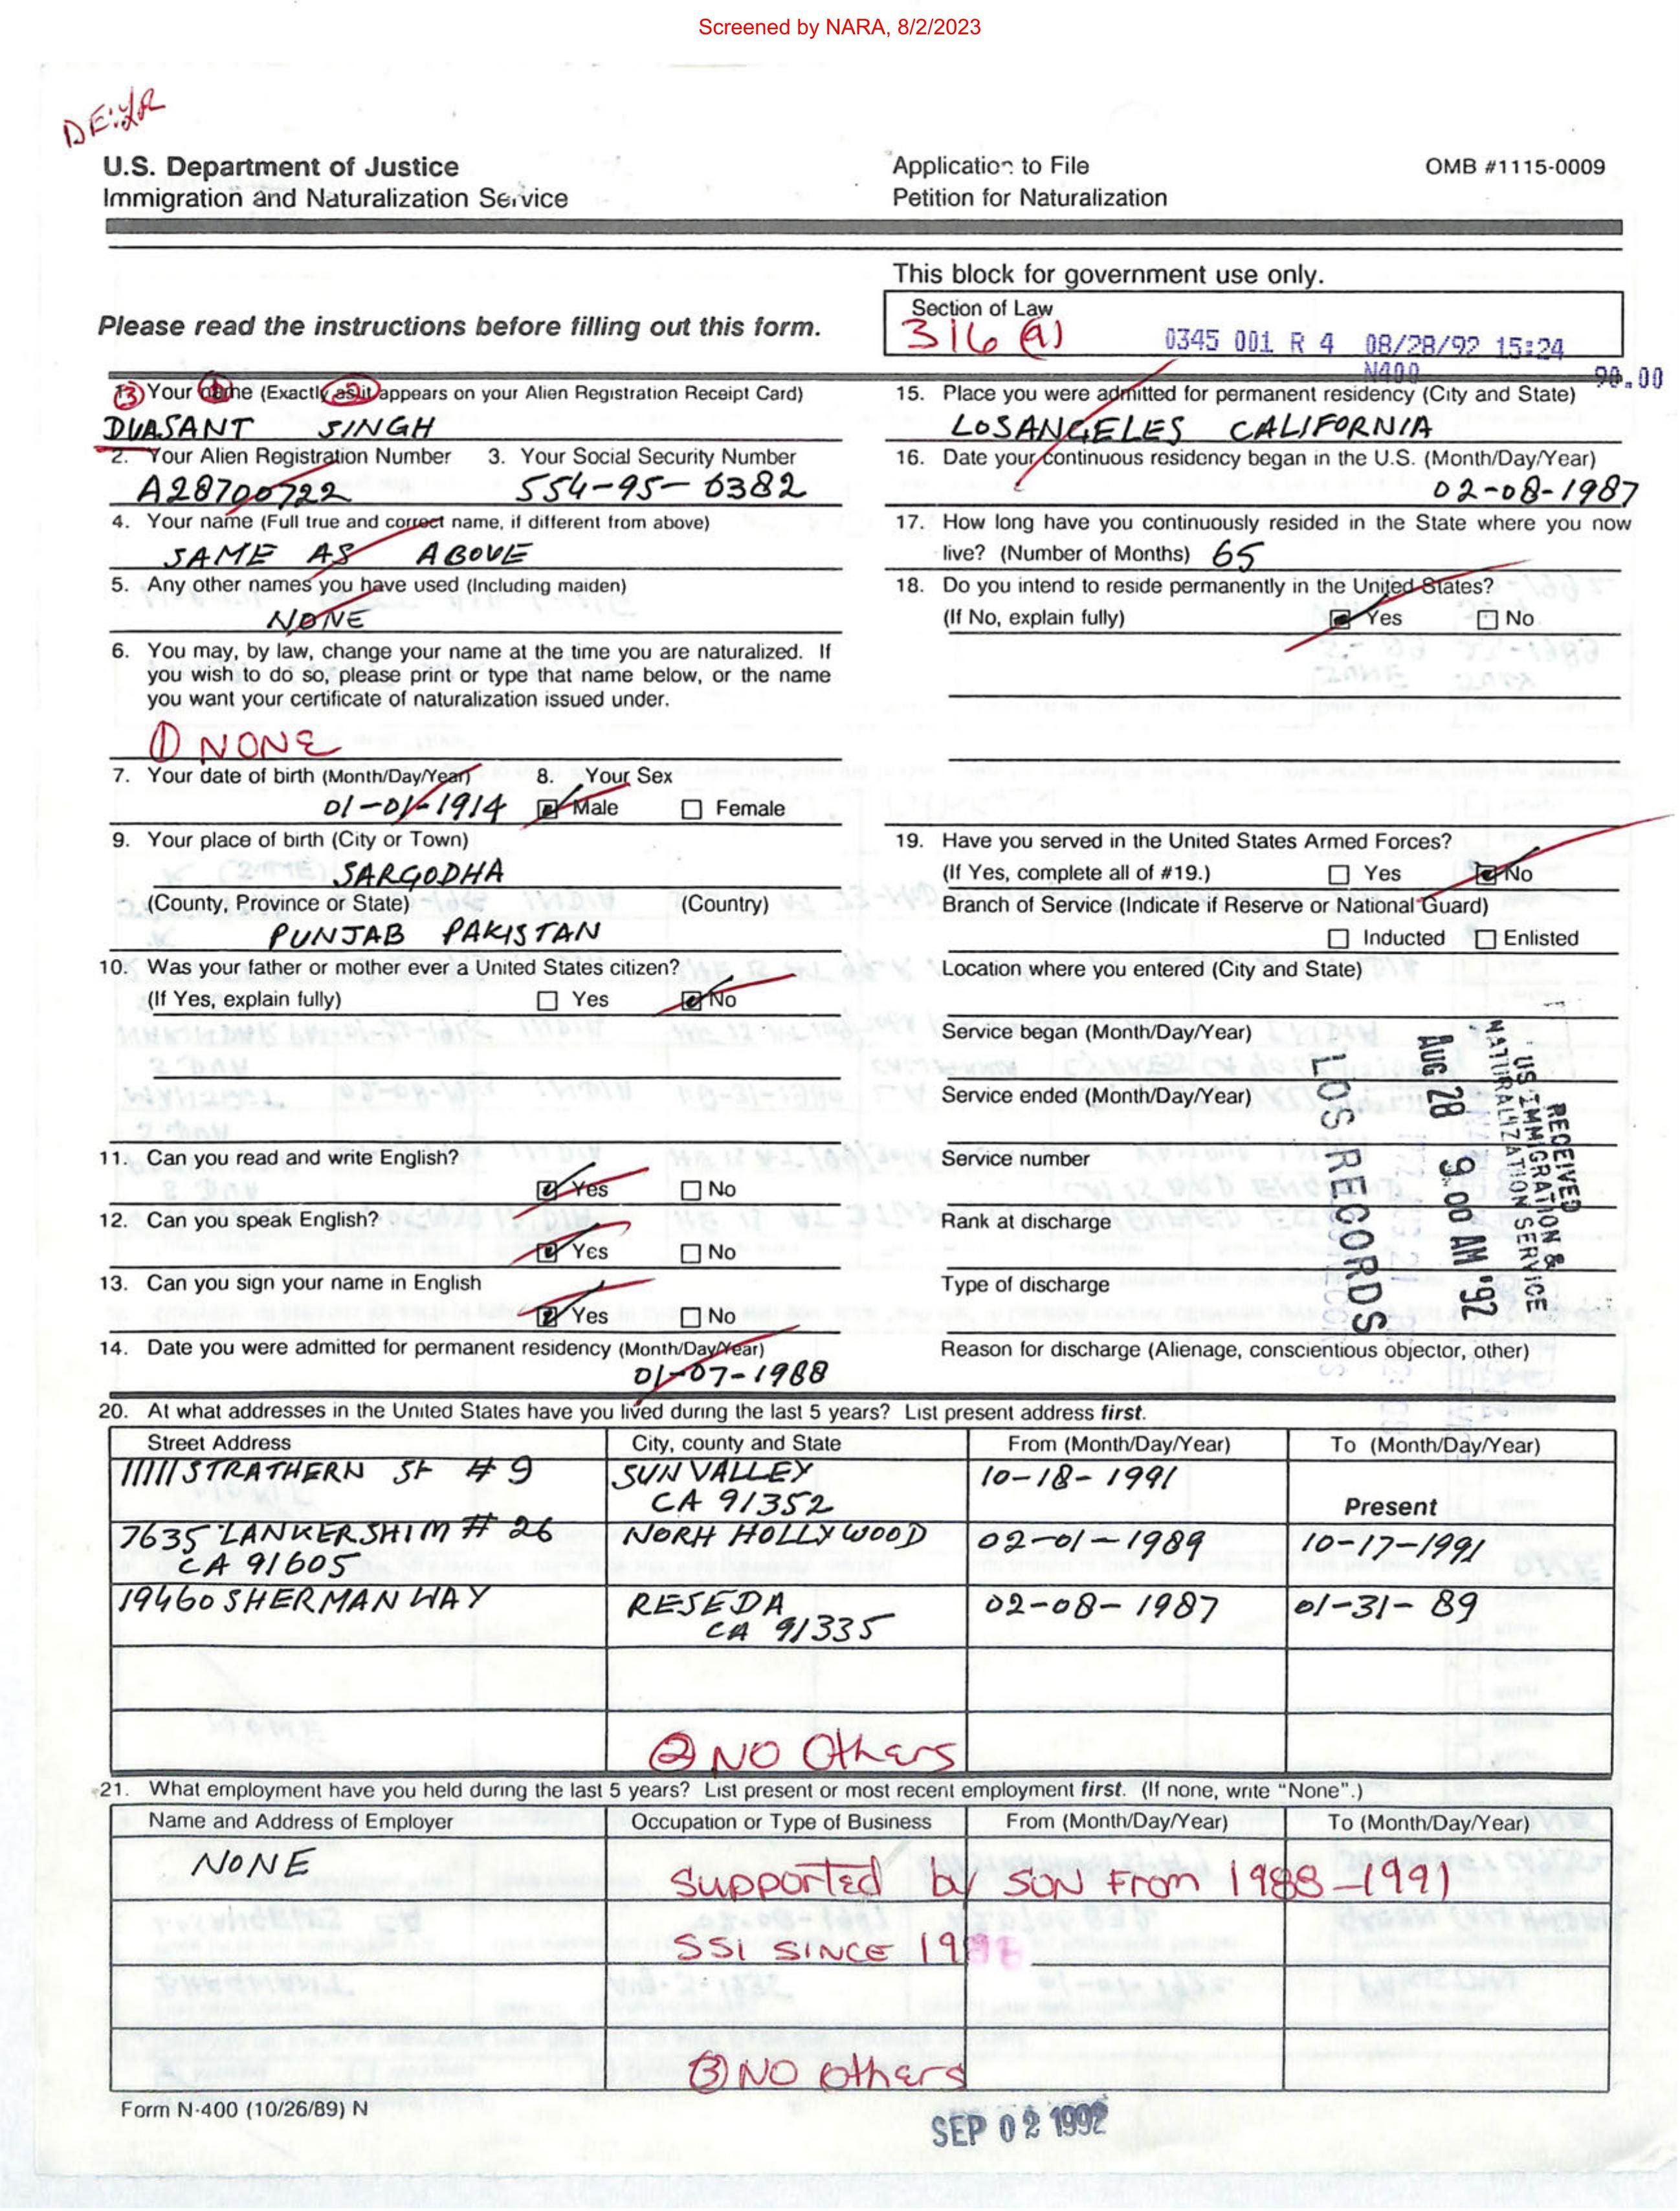 Screened by NARA, 8/2/2023
U.S. Department of Justice
Immigration and Naturalization Service
Application to File
Petition for Naturalization
OMB #1115-0009
This block for government use only.
Please read the instructions before filling out this form.
Section of Law
316 (a)
0345 001 R 4 08/28/92 15:24
N400 90.00
Your name (Exactly as it appears on your Alien Registration Receipt Card)
DVASANT SINGH
2. Your Alien Registration Number
A28700722
3. Your Social Security Number
554-95-6382
4. Your name (Full true and correct name, if different from above)
SAME AS ABOVE
5. Any other names you have used (Including maiden)
NONE
6. You may, by law, change your name at the time you are naturalized. If
you wish to do so, please print or type that name below, or the name
you want your certificate of naturalization issued under.
① NONE
7. Your date of birth (Month/Day/Year)
01-01-1914
8. Your Sex
Male Female
9. Your place of birth (City or Town)
SARGODHA
(County, Province or State) (Country)
PUNJAB PAKISTAN
10. Was your father or mother ever a United States citizen?
(If Yes, explain fully) Yes No
11. Can you read and write English?
Yes No
12. Can you speak English?
Yes No
13. Can you sign your name in English
Yes No
14. Date you were admitted for permanent residency (Month/Day/Year)
01-07-1988
15. Place you were admitted for permanent residency (City and State)
LOSANGELES CALIFORNIA
16. Date your continuous residency began in the U.S. (Month/Day/Year)
02-08-1987
17. How long have you continuously resided in the State where you now
live? (Number of Months) 65
18. Do you intend to reside permanently in the United States?
(If No, explain fully) Yes No
19. Have you served in the United States Armed Forces?
(If Yes, complete all of #19.) Yes No
Branch of Service (Indicate if Reserve or National Guard)
Inducted Enlisted
Location where you entered (City and State)
Service began (Month/Day/Year)
Service ended (Month/Day/Year)
Service number
Rank at discharge
Type of discharge
Reason for discharge (Alienage, conscientious objector, other)
RECEIVED
US IMMIGRATION &
NATURALIZATION SERVICE
AUG 28 9:00 AM '92
LOS RECORDS
20. At what addresses in the United States have you lived during the last 5 years? List present address first.
Street Address City, county and State From (Month/Day/Year) To (Month/Day/Year)
11111 STRATHERN St # 9 SUN VALLEY 10-18-1991
CA 91352 Present
7635 LANKERSHIM # 26 NORH HOLLYWOOD 02-01-1989 10-17-1991
CA 91605
19460 SHERMAN WAY RESEDA 02-08-1987 01-31-89
CA 91335
② NO Others
21. What employment have you held during the last 5 years? List present or most recent employment first. (If none, write "None".)
Name and Address of Employer Occupation or Type of Business From (Month/Day/Year) To (Month/Day/Year)
NONE
Supported by SON From 1988-1991
SSI SINCE
③ NO Others
Form N-400 (10/26/89) N
SEP 02 1992